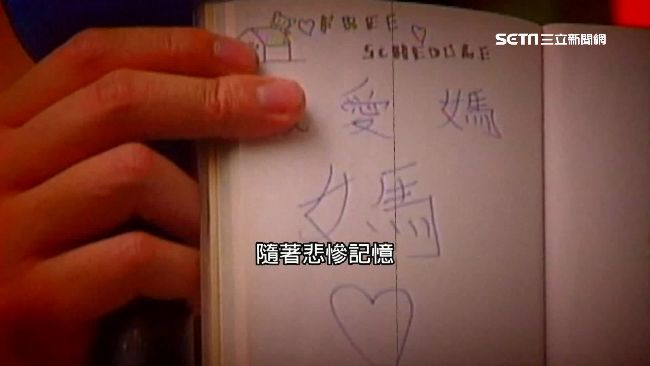 SETN三立新聞網
FREE
SCHEDULE
愛媽
媽
隨著悲慘記憶